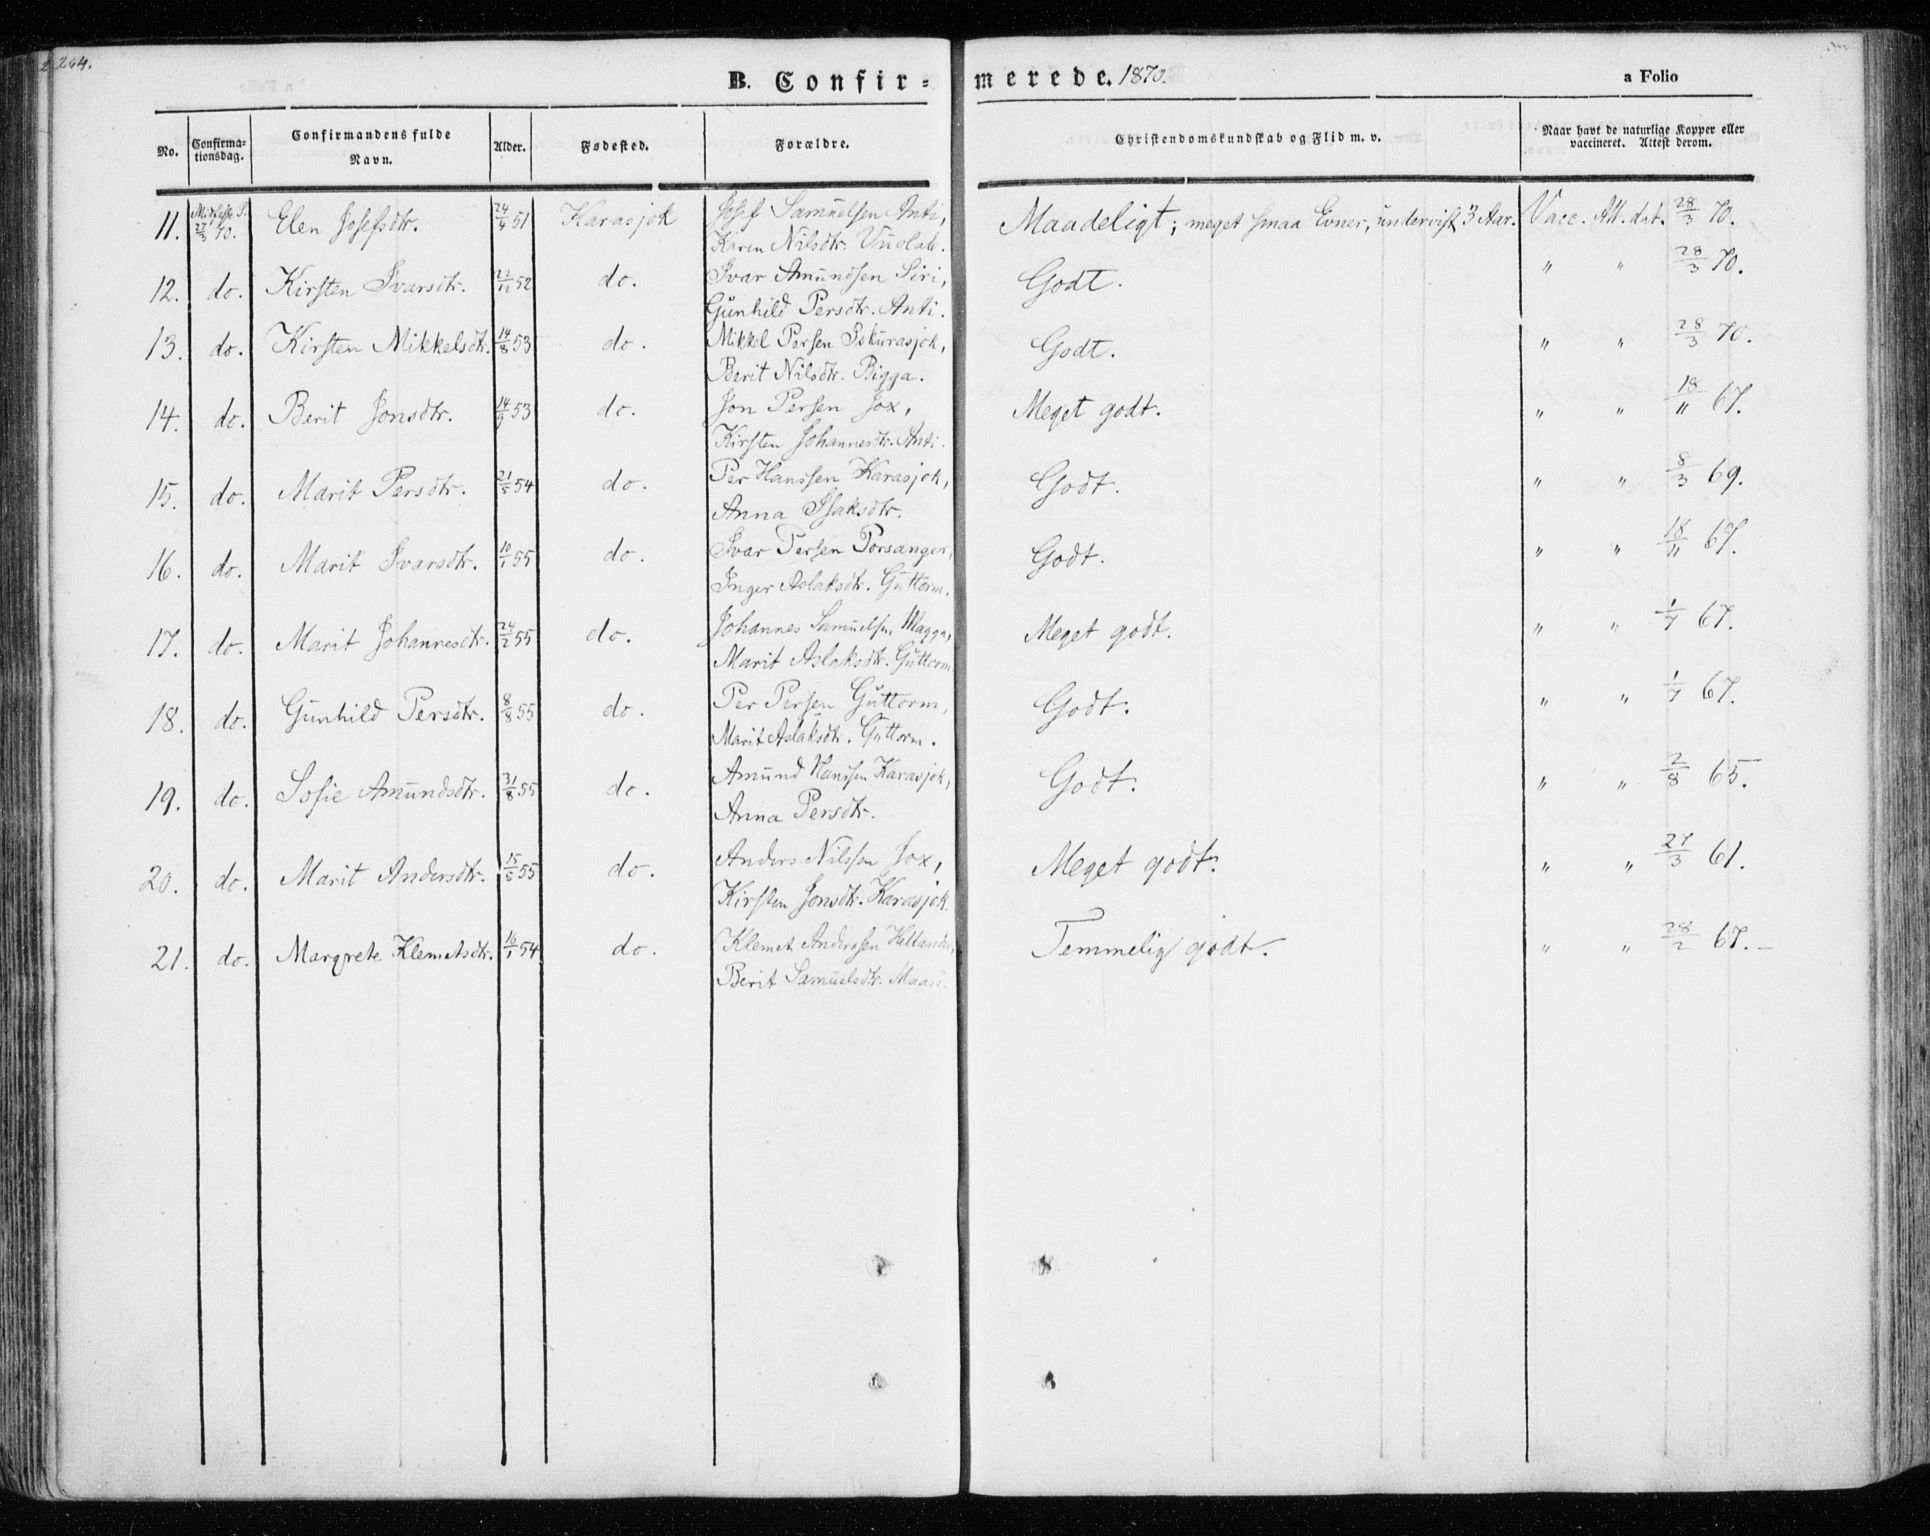 264.
B. Confirmerede. 1870.
a Folio
No. Confirmationsdag. Confirmandens fulde Navn. Alder. Fødested. Forældre. Christendomskundskab og Flid m. v. Naar havt de naturlige Kopper eller vaccineret. Attest derom.
11. Midfaste S. 27/3 70. Elen Josefsdtr. 24/4 51 Karasjok Josef Samuelsen Anti, Maadeligt; meget smaa Evner, undervist 3 Aar. Vacc. Att. dat. 28/3 70.
Karen Nilsdtr. Vuolab.
12. do. Kirsten Ivarsdtr. 22/11 52 do. Ivar Amundsen Siri, Godt. " " 28/3 70.
Gunhild Persdtr. Anti.
13. do. Kirsten Mikkelsdtr. 14/8 53 do. Mikkel Persen Iskurasjok, Godt. " " 28/3 70.
Berit Nilsdtr. Bigga.
14. do. Berit Jonsdtr. 14/9 53 do. Jon Persen Jox, Meget godt. " " 18/11 67.
Kirsten Johannesdtr. Anti.
15. do. Marit Persdtr. 21/5 54 do. Per Hanssen Karasjok, Godt. " " 8/3 69.
Anna Isaksdtr.
16. do. Marit Ivarsdtr. 10/1 55 do. Ivar Persen Porsanger, Godt. " " 18/11 67.
Inger Aslaksdtr. Guttorm.
17. do. Marit Johannesdtr. 24/2 55 do. Johannes Samuelsen Magga, Meget godt. " " 1/7 67.
Marit Aslaksdtr. Guttorm
18. do. Gunhild Persdtr. 8/8 55 do. Per Persen Guttorm, Godt. " " 1/7 67.
Marit Aslaksdtr. Guttorm.
19. do. Sofie Amundsdtr. 31/8 55 do. Amund Hanssen Karasjok, Godt. " " 2/8 65.
Anna Persdtr.
20. do. Marit Andersdtr. 15/5 55 do. Anders Nilssen Jox, Meget godt. " " 27/3 61.
Kirsten Jonsdtr. Karasjok.
21. do. Margrete Klemetsdtr. 16/1 54 do. Klemet Anderssen Hellander, Temmelig godt. " " 28/2 67.-
Berit Samuelsdtr. Maasø.